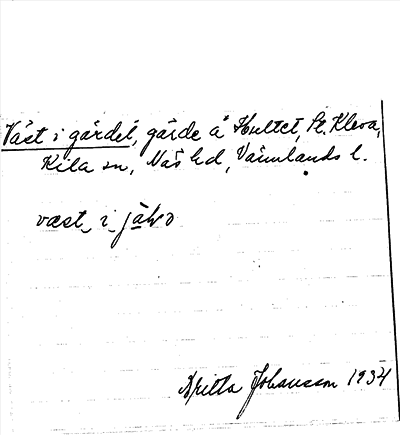 Väst i gärdet, gärde å Hultet, St. Kleva,
Kila sn, Näs hd, Värmlands l.
væst i
Britta Johansson 1934